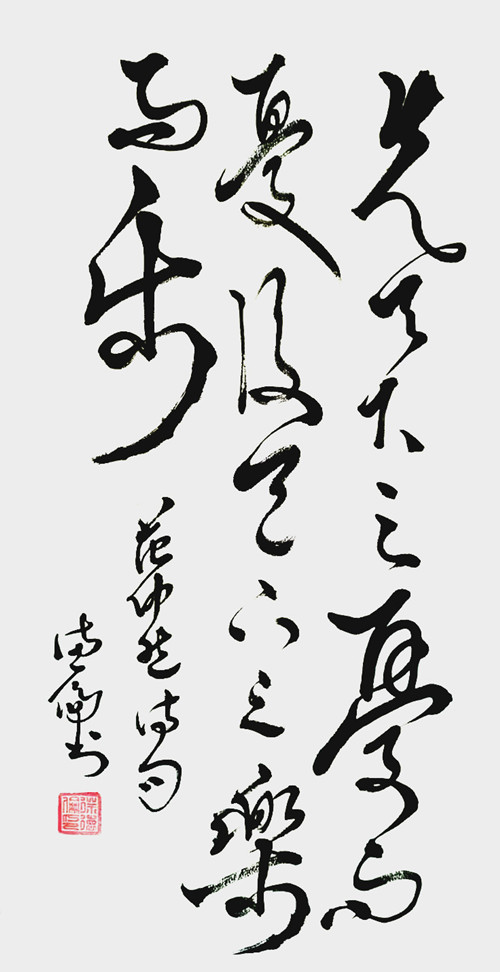 先天下之憂而
憂後天下之樂
而樂
范仲淹诗句
德倫书